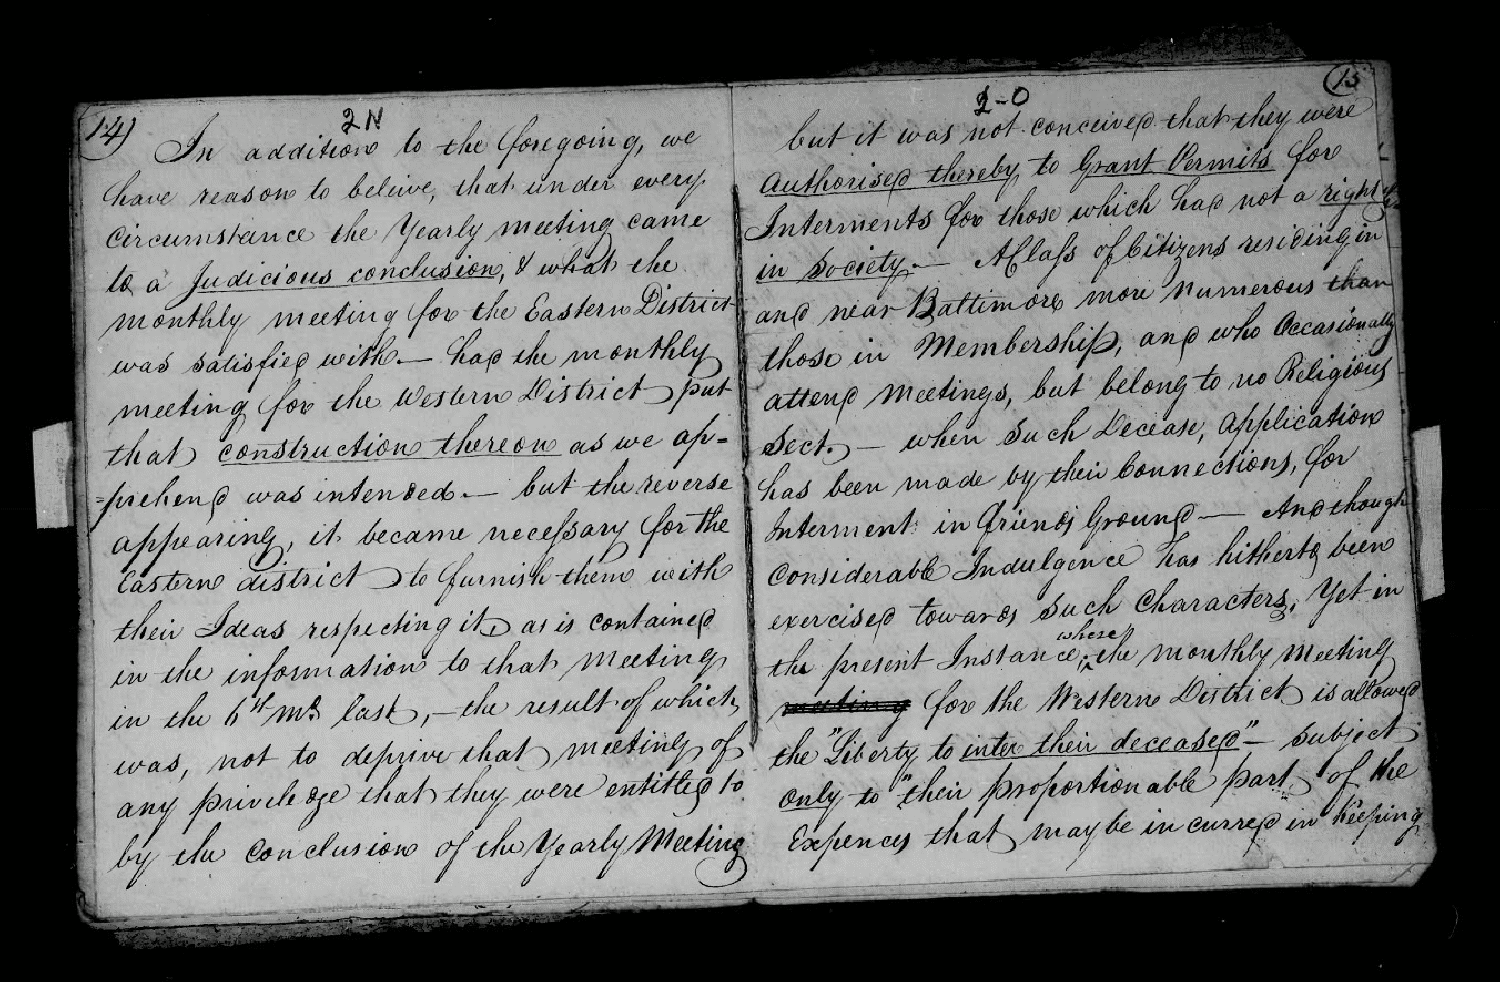 14)
2N
In addition to the foregoing, we
have reason to believe, that under every
Circumstance the Yearly meeting came
to a Judicious conclusion, & what the
monthly meeting for the Eastern District
was satisfied with. — had the monthly
meeting for the Western District put
that construction thereon as we ap=
=prehend was intended. — but the reverse
appearing, it became necessary for the
Eastern district to furnish them with
their Ideas respecting it, as is contained
in the information to that meeting
in the 6th mo last, — the result of which
was, not to deprive that meeting of
any priviledge that they were entitled to
by the Conclusion of the Yearly Meeting
15
2-O
but it was not conceived that they were
Authorised thereby to Grant Permits for
Interments for those which had not a right
in Society. — A Class of Citizens residing in
and near Baltimore more numerous than
those in Membership, and who Occasionally
attend Meetings, but belong to no Religious
Sect. — when such Decease, Application
has been made by their Connections, for
Interment in Friends Ground — And though
Considerable Indulgence has hitherto been
exercised towards such Characters, Yet in
where
the present Instance, the monthly Meeting
meeting for the Western District is allowed
the "Liberty to inter their deceased" — subject
Only to "their proportionable part of the
Expences that may be incurred in Keeping